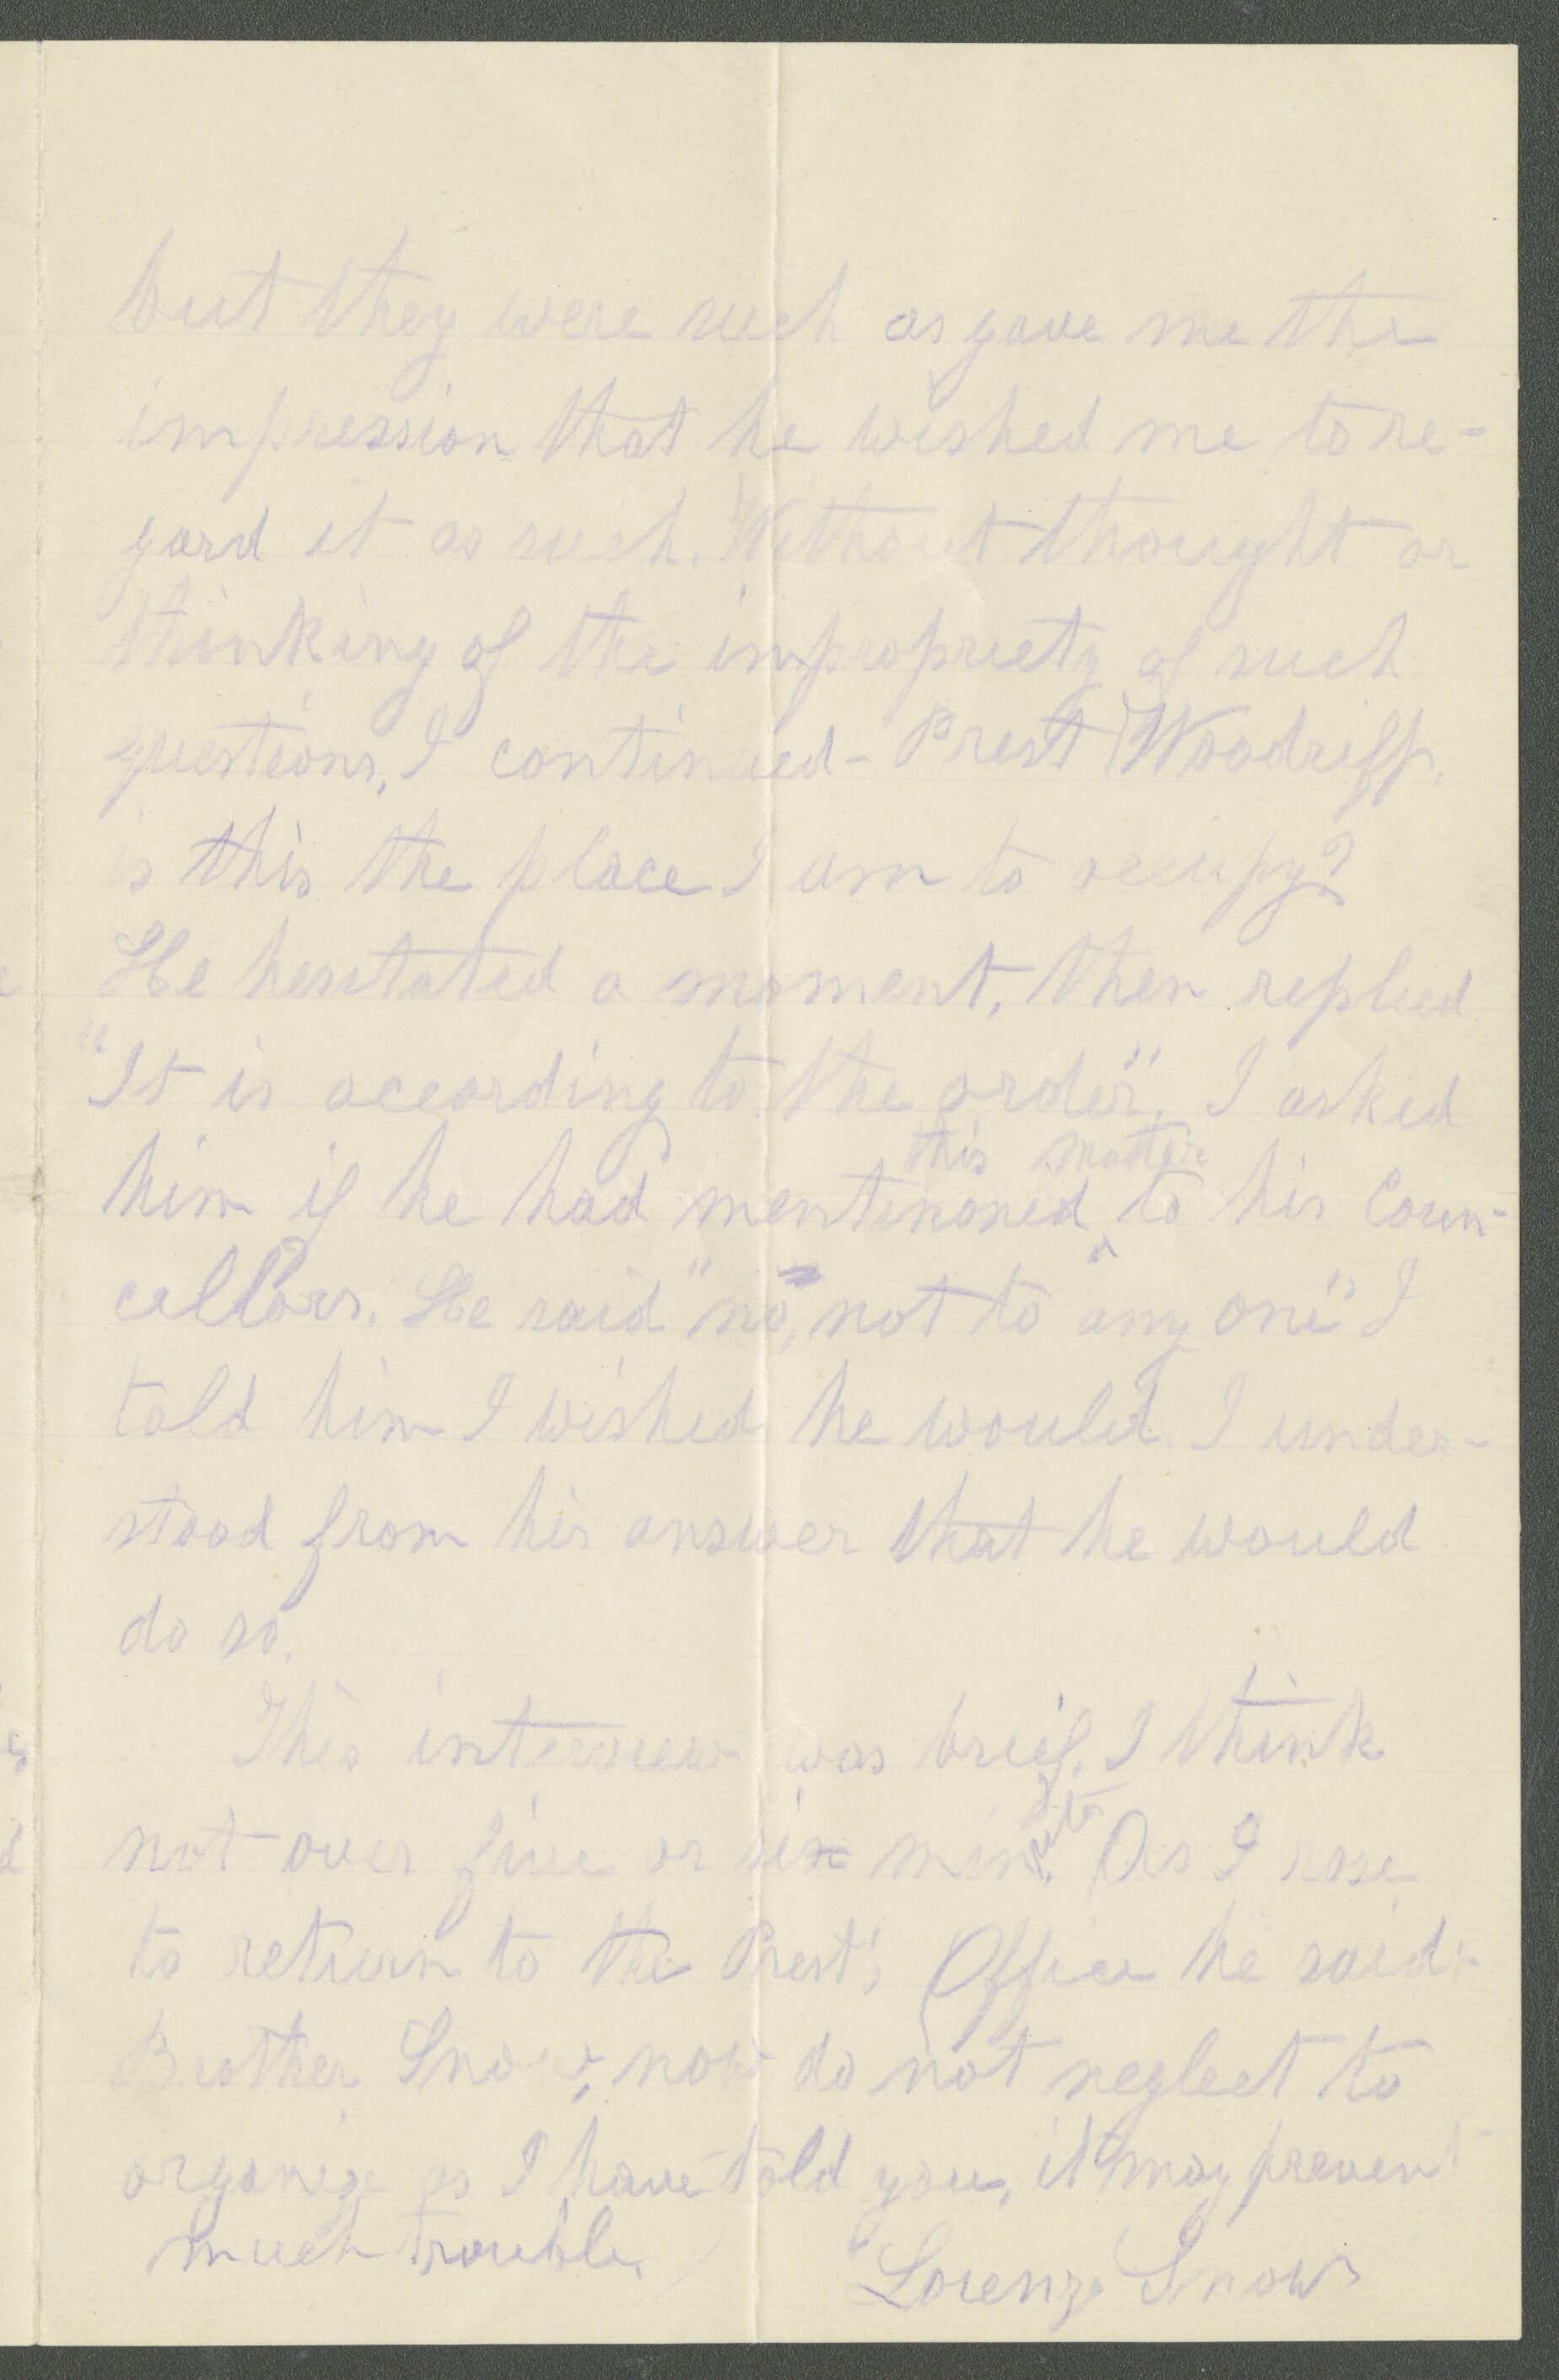 but they were such as gave me the
impression that he wished me to re-
gard it as such. Without thought or
thinking of the impropriety of such
questions, I continued- Prest Woodriff,
is this the place I am to occupy?
He hesitated a moment, then replied
"It is according to the order". I asked
this matter
him if he had mentinoned ^ to his Coun-
cellors. He said "no, not to any one" I
told him I wished he would. I under-
stood from his answer that he would
do so.
This interview was brief, I think
not over five or six minutes. As I rose
to return to the Prest's Office he said:-
Brother Snow, now do not neglect to
organize as I have told you, it may prevent
much trouble.
Lorenzo Snow